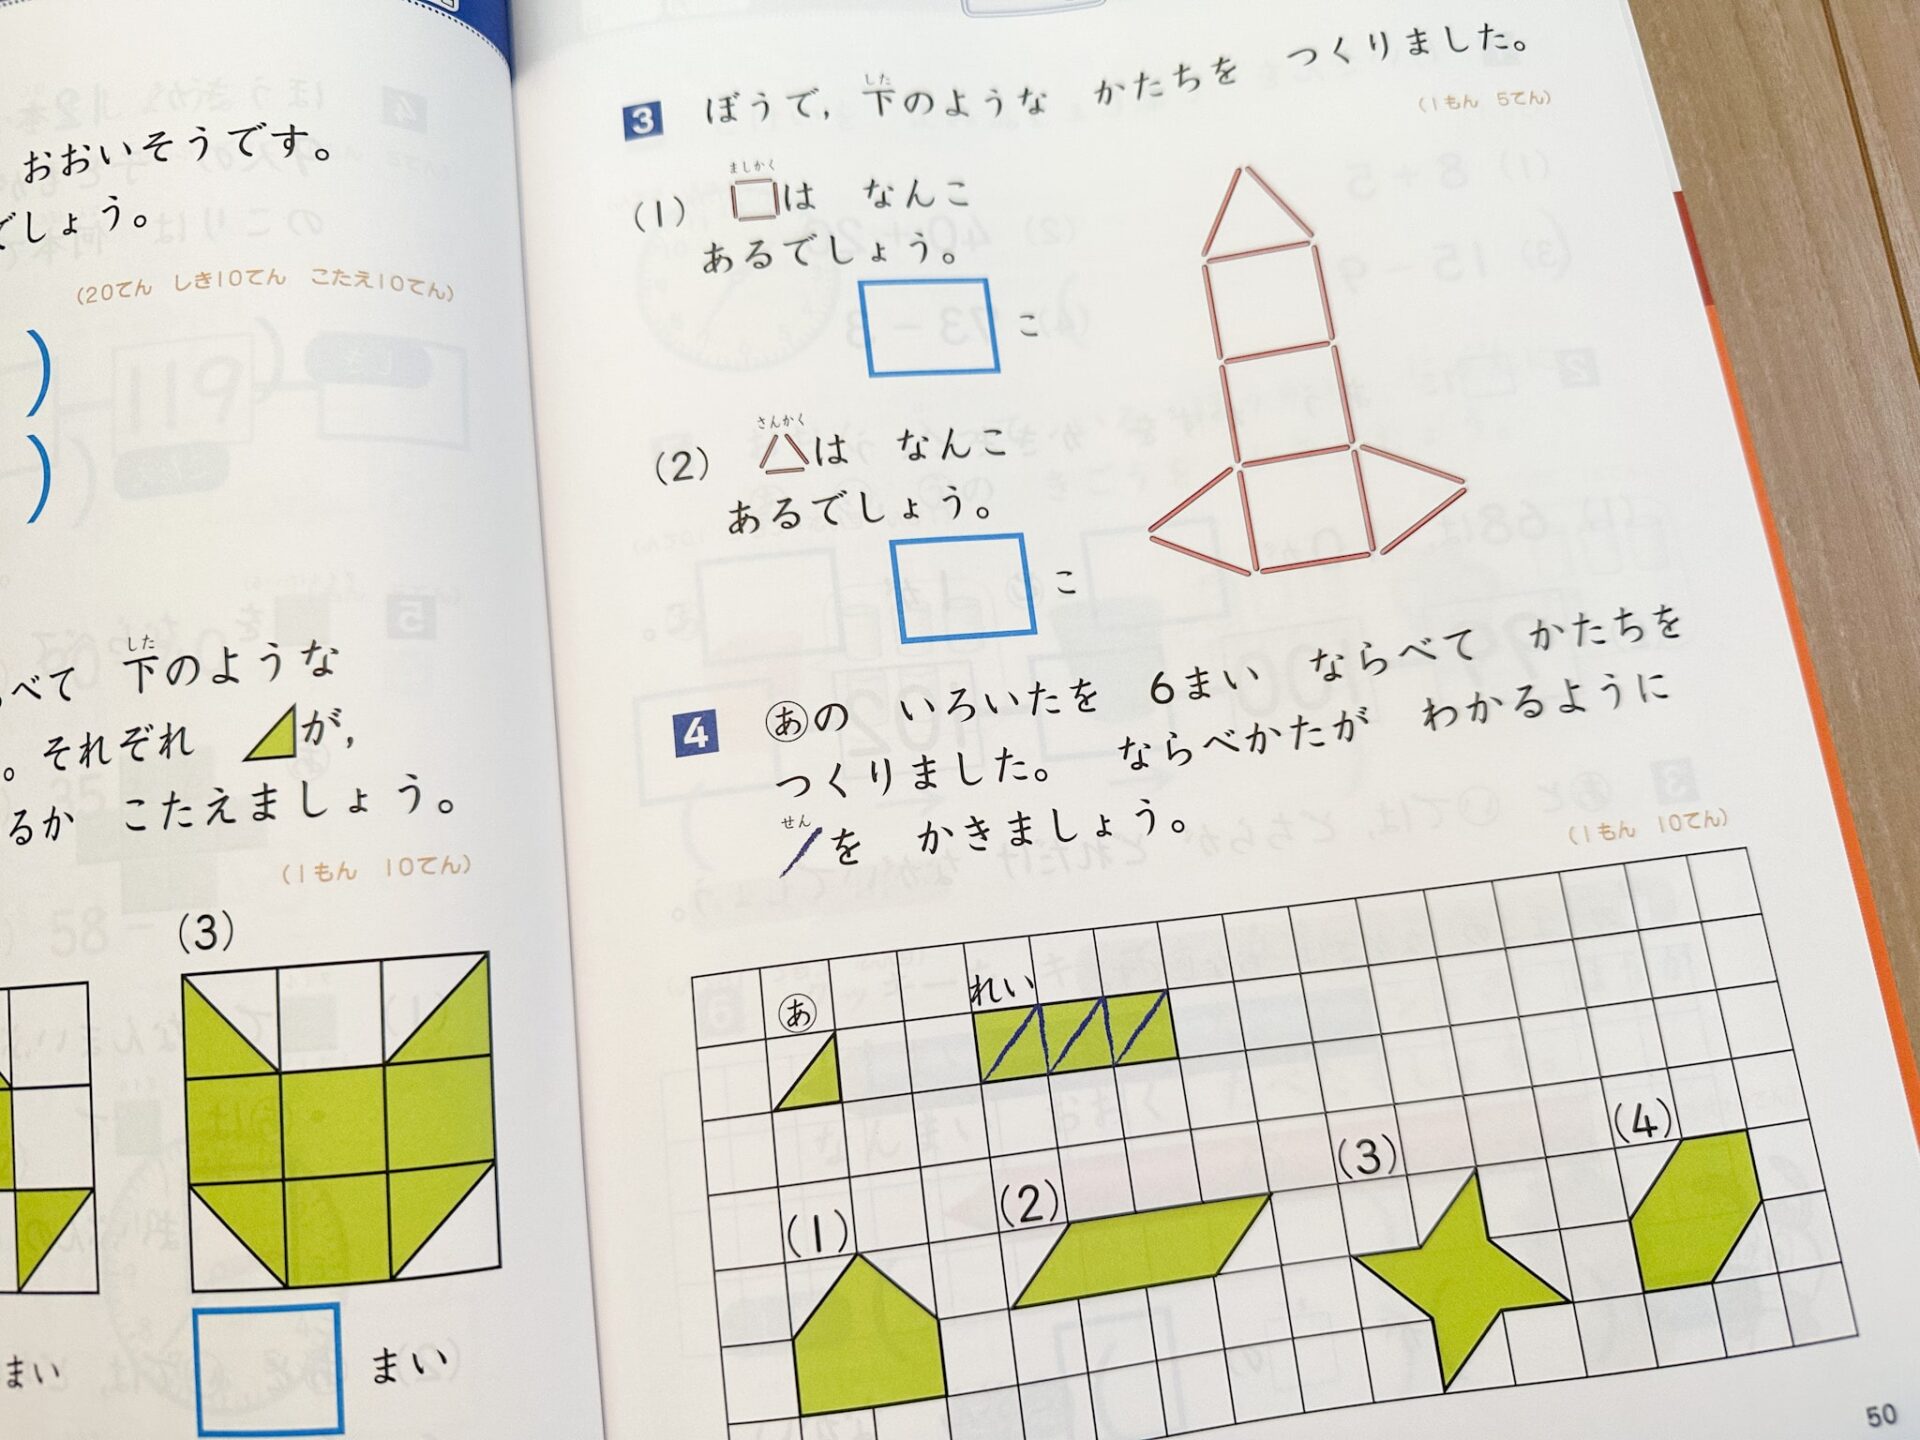 おおいそうです。
でしょう。
(20てん しき10てん こたえ10てん)
べて 下のような
した
。それぞれ が,
るか こたえましょう。
(1もん 10てん)
(3)
まい
まい
3 ぼうで, 下のような かたちを つくりました。
した
(1もん 5てん)
(1) は なんこ
ましかく
あるでしょう。
こ
(2) は なんこ
さんかく
あるでしょう。
こ
4 あの いろいたを 6まい ならべて かたちを
つくりました。 ならべかたが わかるように
せん
を かきましょう。
(1もん 10てん)
れい
あ
(1)
(2)
(3)
(4)
50